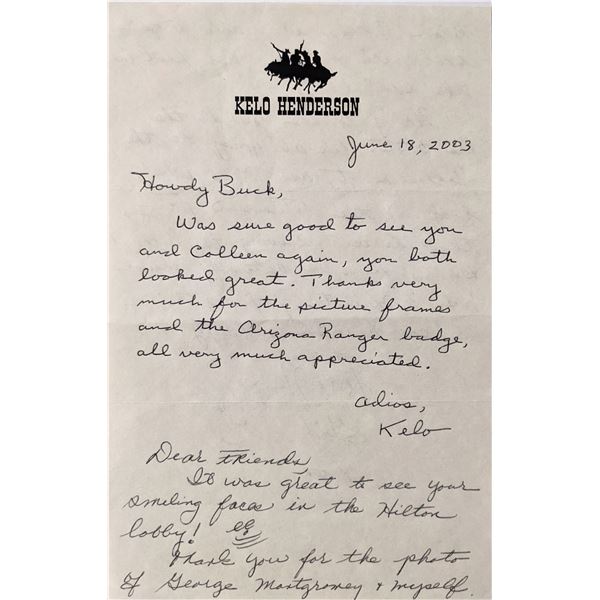 KELO HENDERSON
June 18, 2003
Howdy Buck,
Was sure good to see you
and Colleen again, you both
looked great. Thanks very
much for the picture frames
and the Arizona Ranger badge,
all very much appreciated.
Adios,
Kelo
Dear Friends,
It was great to see your
smiling faces in the Hilton
lobby!
Thank you for the photo
of George Montgromey + myself.